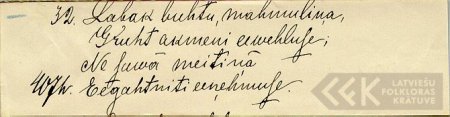 32. Labak buhtu, mahmuliņa,
Gruht akmeni eewehluse;
Ne sawâ meitiņâ
4074. Eegahtniti eeņehmuse.
LATVIEŠU
FOLKLORAS
KRĀTUVE